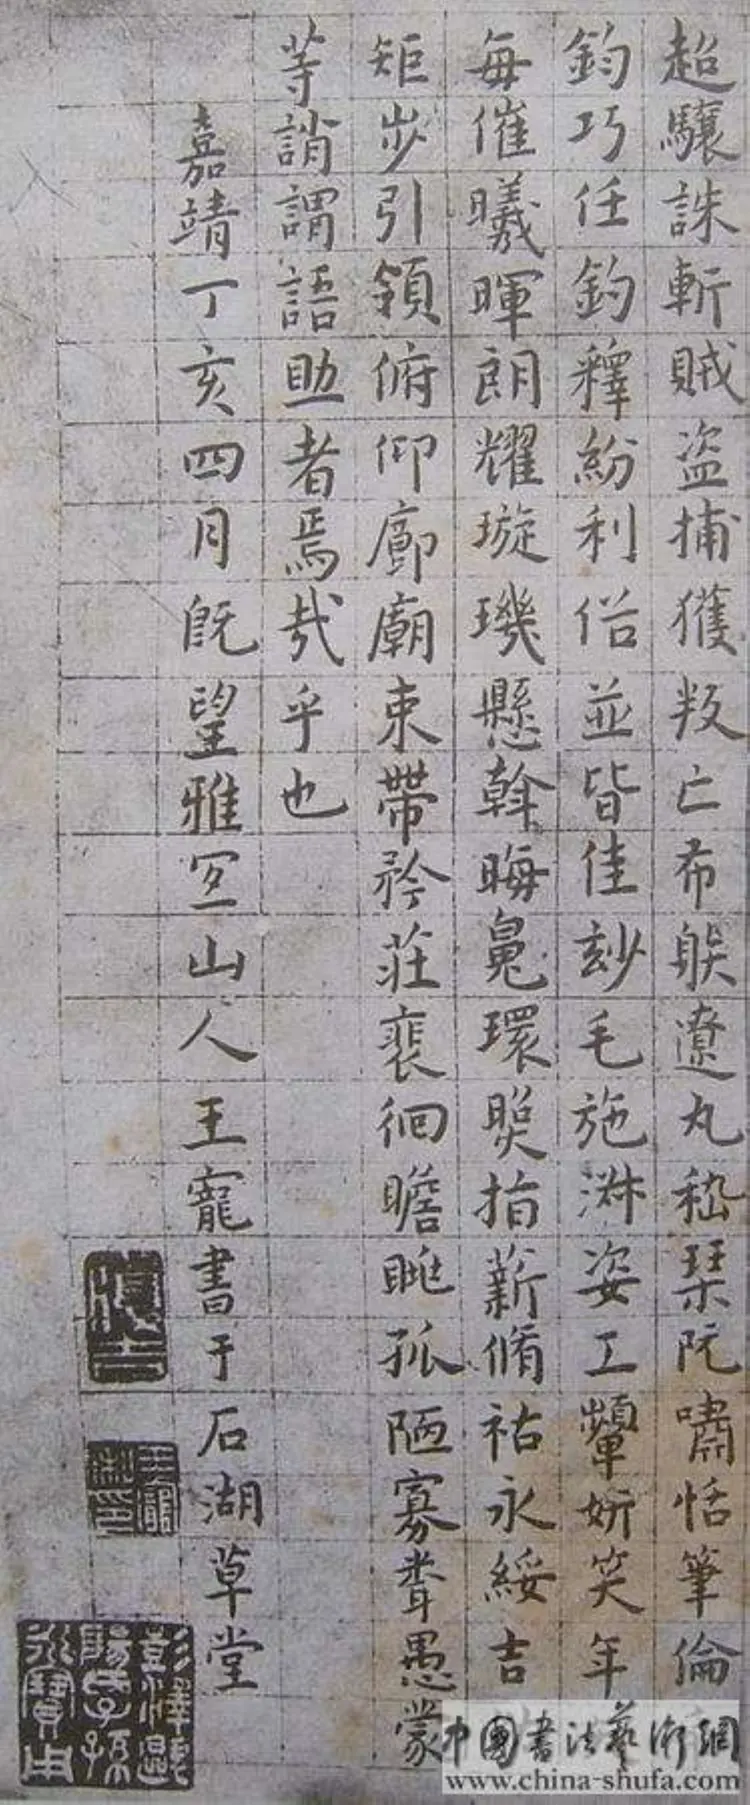 超驤誅斬賊盜捕獲叛亡布䠶遼丸嵇琹阮嘯恬筆倫
鈞巧任鈞釋紛利俗並皆佳玅毛施淑姿工顰妍笑年
每催曦暉朗耀璇璣懸斡晦魄環照指薪脩祜永綏吉
矩步引領俯仰廊廟束帶矜莊裴徊瞻眺孤陋寡聞愚蒙
等誚謂語助者焉哉乎也
嘉靖丁亥四月既望雅宜山人王寵書于石湖草堂
王寵私印
中國書法藝術網
www.china-shufa.com